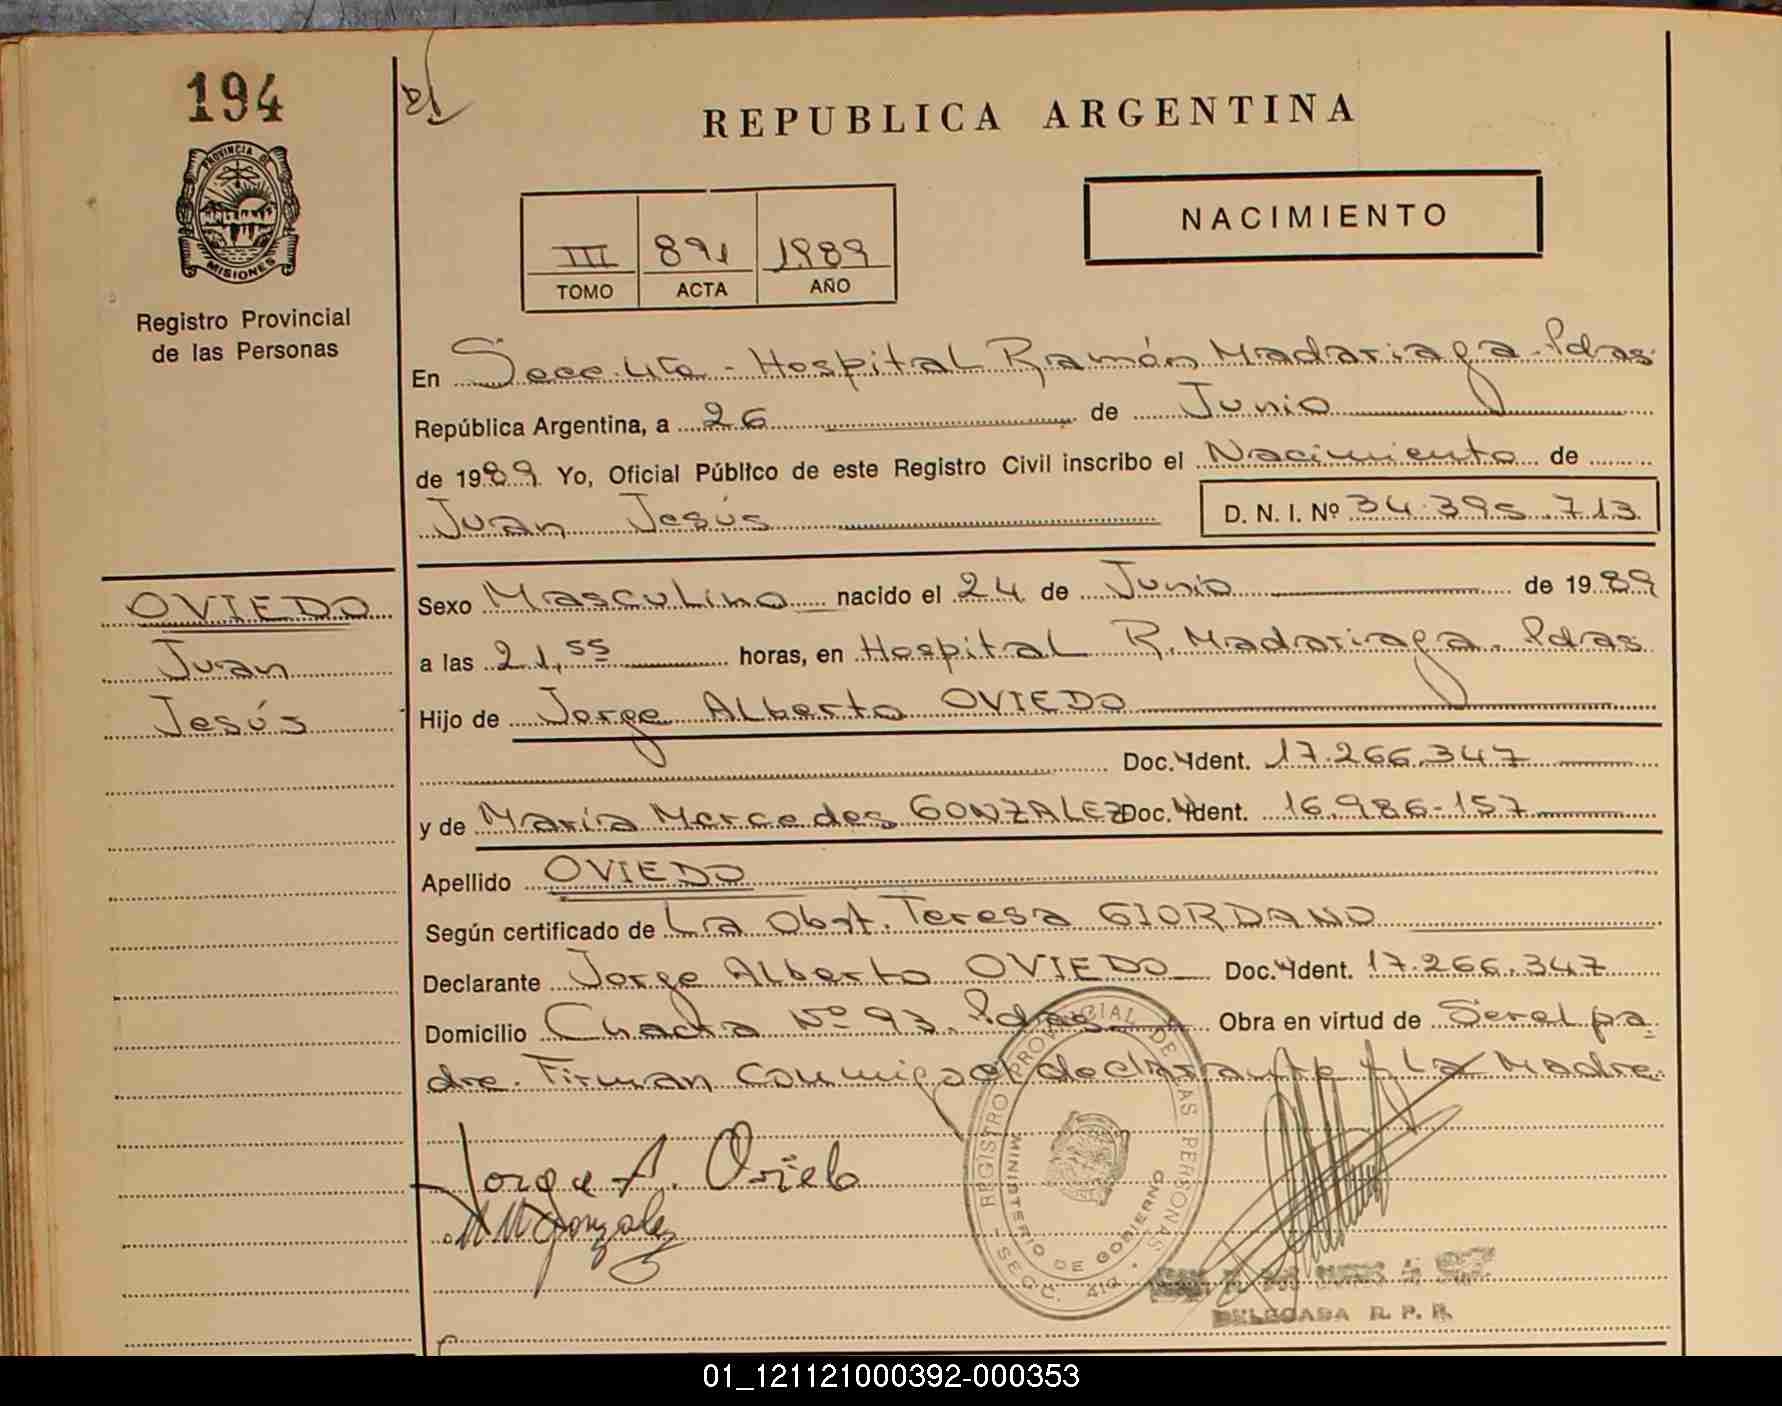 194
PROVINCIA DE
MISIONES
Registro Provincial
de las Personas
OVIEDO
Juan
Jesús
REPUBLICA ARGENTINA
NACIMIENTO
III 891 1989
TOMO ACTA AÑO
En Secc. 4ta - Hospital Ramón Madariaga - Pdas.
República Argentina, a 26 de Junio
de 1989 Yo, Oficial Público de este Registro Civil inscribo el Nacimiento de
Juan Jesús D. N. I. Nº 34.395.713
Sexo Masculino nacido el 24 de Junio de 1989
a las 21,55 horas, en Hospital R. Madariaga. Pdas
Hijo de Jorge Alberto OVIEDO
Doc. Ident. 17.266.347
y de María Mercedes GONZALEZ Doc. Ident. 16.986-157
Apellido OVIEDO
Según certificado de La Obst. Teresa GIORDANO
Declarante Jorge Alberto OVIEDO Doc. Ident. 17.266.347
Domicilio Chacra Nº 93. Pdas. Obra en virtud de Ser el pa
dre. Firman conmigo el declarante y La Madre.
Jorge A. Oviedo
M M Gonzalez
REGISTRO PROVINCIAL DE LAS PERSONAS
MINISTERIO DE GOBIERNO
SECC. 4ta
DELEGADA R. P. P.
01_121121000392-000353